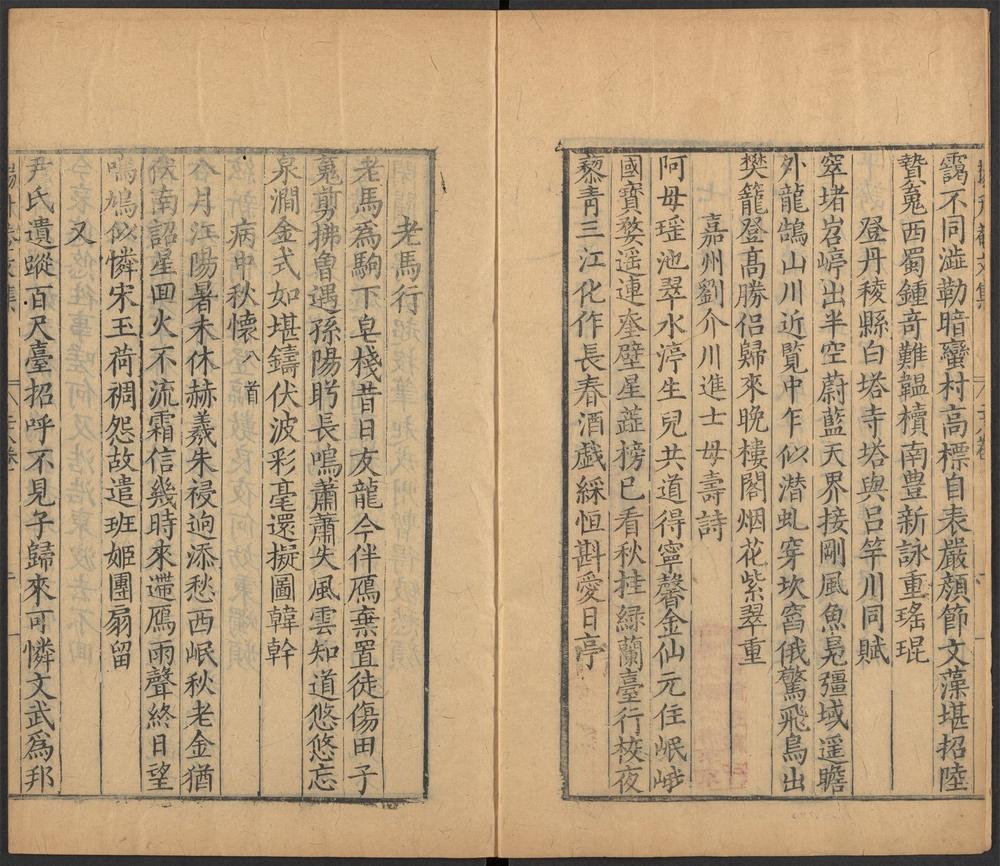 靄不同澁勒暗蠻村高標自表嚴顏節文藻堪招陸
贄䰟西蜀鍾奇難韞櫝南豊新詠重瑤琨
登丹稜縣白塔寺塔與呂竿川同賦
窣堵岧嵉出半空蔚藍天界接剛風魚鳬彊域遥瞻
外龍鵠山川近覧中乍似潜虬穿坎窞俄驚飛鳥出
樊籠登髙勝侣歸來晚樓閣烟花紫翠重
嘉州劉介川進士母壽詩
阿母瑶池翠水渟生兒共道得寧馨金仙元住岷峨
國寶婺遥連奎壁星蘂榜已看秋桂緑蘭臺行校夜
藜青三江化作長春酒戯綵恒斟愛日亭
老馬行
老馬為駒下皂棧昔日友龍今伴鴈棄置徒傷田子
䰟剪拂魯遇孫陽眄長鳴蕭蕭失風雲知道悠悠忘
泉澗金式如堪鑄伏波彩毫還擬圖韓幹
病中秋懐八首
七月江陽暑未休赫羲朱祲逈添愁西岷秋老金猶
伏南詔星回火不流霜信幾時來遰鴈雨聲終日望
鳴鳩似憐宋玉荷裯怨故遣班姬團扇留
又
尹氏遺蹤百尺臺招呼不見子歸來可憐文武為邦